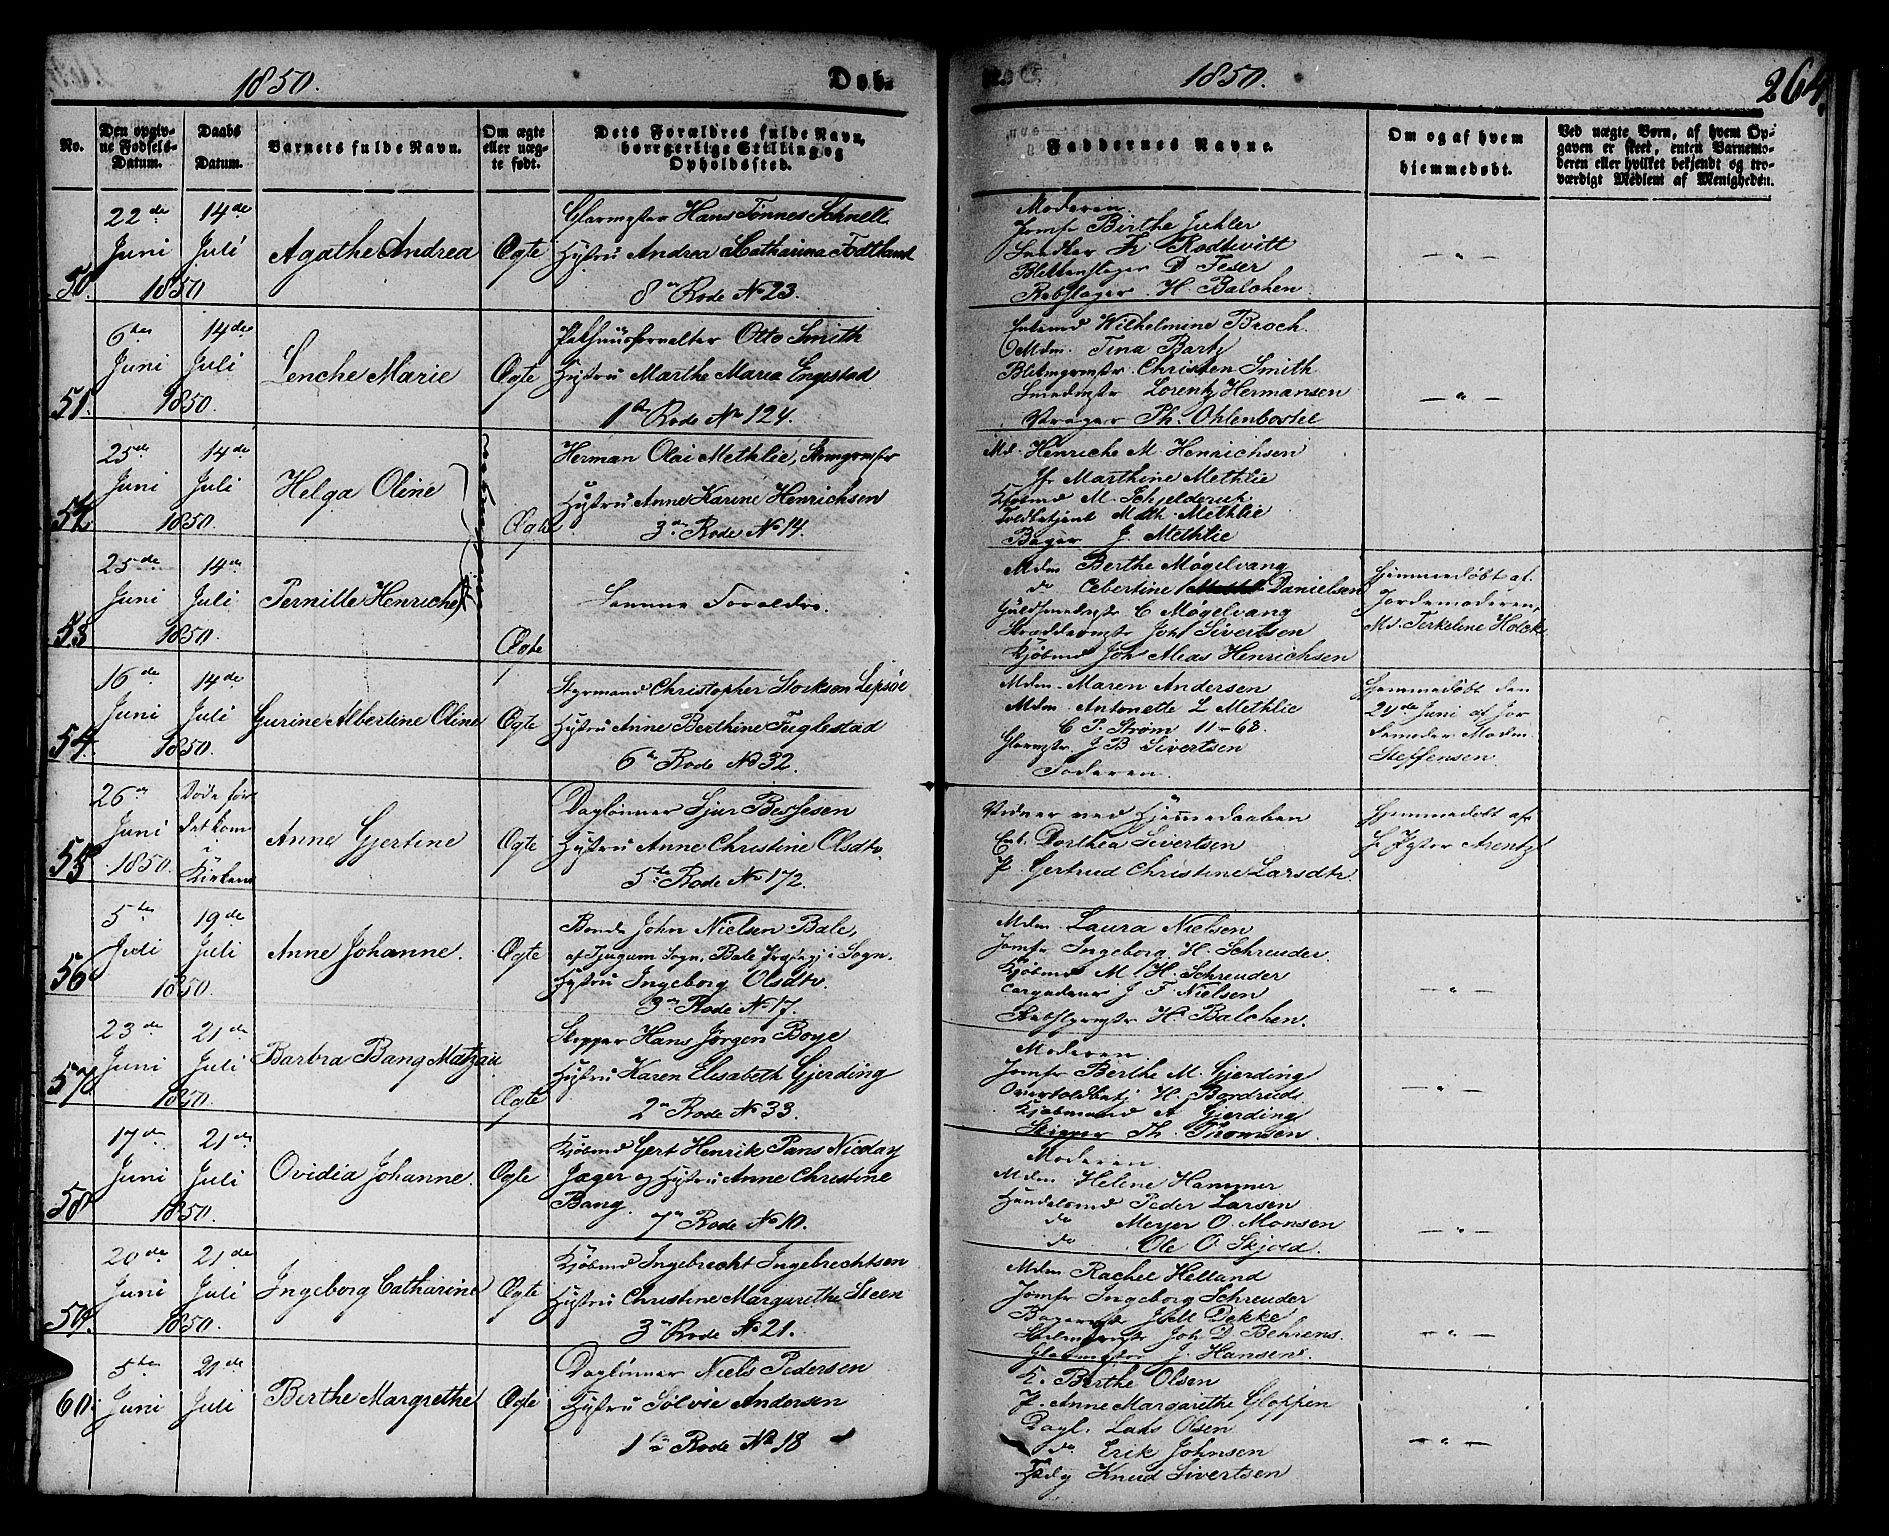 1850.
Dob.
1850.
264.
No.
Den opgiv-
ne Fødsels-
Datum.
Daabs
Datum.
Barnets fulde Navn.
Om ægte
eller uæg-
te født.
Dets Forældres fulde Navn,
borgerlige Stilling og
Opholdsted.
Faddernes Navne.
Om og af hvem
hjemmedøbt.
Ved uægte Børn, af hvem Op-
gaven er skeet, enten Barnemo-
deren eller hvilket bekjendt og tro-
værdigt Medlem af Menigheden.
50.
22de
Juni
1850
14de
Juli
Agathe Andrea
Ægte
Glarmester Hans Tønnes Schnell
Hustru Andrea Catharina Fodtland
8de Rode No 23.
Moderen
Jomfr Birthe Juhler
Snedker Fr. Rodtwitt
Blikkenslager D Feser
Rebslager H. Balchen
— " —
51.
6te
Juni
1850.
14de
Juli
Lenche Marie
Ægte
Pakhuusforvalter Otto Smith
Hustru Marthe Maria Engestad
1te Rode No 124.
Wilhelmine Broch.
Mdm. Tina Bartz
Christen Smith
Smedmstr Lorentz Hermansen
Vrager Th. Ohlenbostel
— " —
52.
25de
Juni
1850.
14de
Juli
Helga Oline
Tvillinger
Ægte
Herman Olai Methlie,
Hustru Anne Karine Henrichsen
3de Rode No 14.
Md. Henriche M. Henrichsen
Jfr Marthine Methlie
Kjøbmd M. Schjelderuk
Toldbetjent Math. Methlie
Bager J. Methlie
53
25de
Juni
1850.
14de
Juli
Pernille Henriche
Ægte
Samme Foreldre.
Mdm Berthe Møgelvang
do Albertine Danielsen
Guldsmedmstr C Møgelvang
Skræddermstr Joh Sivertsen
Kjøbmd Joh Meas Henrichsen
Hjemmedøbt af
Jordemoderen,
Md. Terkeline Holck
54.
16de
Juni
1850.
14de
Juli
Gurine Albertine Oline
Ægte
Styrmand Christopher Storksen Lepsøe
Hustru Anne Berthine Fuglestad
6te Rode No 32.
Mdm. Maren Andersen
Mdm. Antonette L Methlie
C P. Strøm 11-68.
Glarmstr J B Sivertsen
Faderen.
Hjemmedøbt den
24de Juni af Jor
demoder Madm.
Steffensen.
55
26de
Juni
1850.
Døde før
det kom
i
Kirken
Anne Gjertine
Ægte
Daglønner Sjur Besjesen
Hustru Anne Christine Olsdtr.
5te Rode No 172.
Vidner ved Hjemmedaaben
Dorthea Sivertsen
P. Gertrud Christine Larsdtr.
Hjemmedøbt af
Arentz
56
5te
Juli
1850.
19de
Juli
Anne Johanne.
Ægte
Bonde John Nielsen Bale,
af Sogn, Bale i Sogn.
Hustru Ingeborg Olsdtr.
3de Rode No 17.
Mdm. Laura Nielsen
Jomfr Ingeborg H. Schreuder.
Kjøbmd M. H. Schreuder
Cargadeur J F. Nielsen
H. Balchen.
— " —
57
23de
Juni
1850.
21de
Juli
Barbra Bang Matzau
Ægte
Skipper Hans Jørgen Boye
Hustru Karen Elisabeth Gjerding
2de Rode No 33.
Moderen.
Jomfr Berthe M. Gjerding
Overtoldbetj H. Bordruds
Kjøbmand A Gjerding
Skipper Th. Thomsen.
— " —
58
17de
Juni
1850.
21de
Juli
Ovidia Johanne.
Ægte
Kjøbmd Gert Henrik Pans Nicolay
Jæger og Hustru Anne Christine
Bang.
7de Rode No 10.
Moderen.
Mdm Helene Hammer
Handelsmd Peder Larsen
do Meyer O. Monsen
do Ole O. Skjold.
— " —
59.
20de
Juni
1850.
21de
Juli
Ingeborg Catharine
Ægte
Kjøbmd Ingebrecht Ingebrechtsen
Hustru Christine Margarethe Steen
3de Rode No 21.
Mdm Rachel Helland
Jomfr Ingeborg Schreuder
Dekke
Joh D. Behrens.
J. Hansen.
— " —
60.
5te
Juni
21de
Juli
Berthe Margrethe
Ægte
Daglønner Niels Pedersen
Hustru Sølvie Andersen
1te Rode No 18
K. Berthe Olsen
P. Anne Margarethe Gloppen
Dagl. Lars Olsen
do Erik Johnsen
Knud Sivertsen
— " —